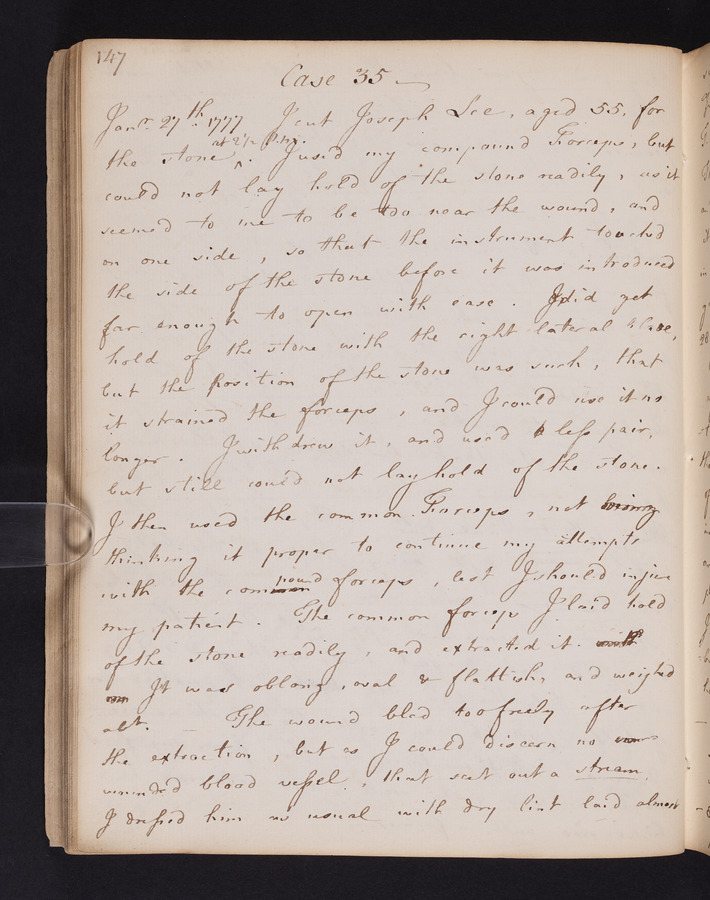 147
Case 35
Janr. 27th. 1777 I cut Joseph Lee, aged 55, for
at 2 1/2 P.M.
the stone ^. I used my compound Forceps, but
could not lay hold of the stone readily, as it
seemed to me to be too near the wound, and
on one side, so that the instrument touched
the side of the stone before it was introduced
far enough to open with ease. I did get
hold of the stone with the right lateral blade,
but the position of the stone was such, that
it strained the forceps, and I could use it no
longer. I withdrew it, and used a less pair,
but still could not lay hold of the stone.
I then used the common Forceps, not
thinking it proper to continue my attempts
with the compound forceps, lest I should injure
my patient. The common forceps I laid hold
of the stone readily, and extracted it. with
It was oblong, oval & flattish, and weighed
The wound bled too freely after
the extraction, but as I could discern no
wounded blood vessel, that sent out a stream,
I dressed him as usual with dry lint laid almost